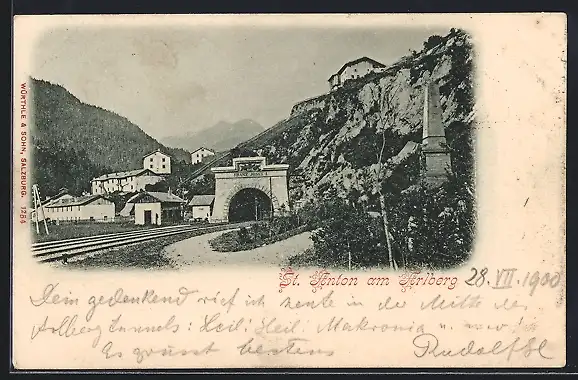 WÜRTHLE & SOHN, SALZBURG. 1284
St. Anton am Arlberg 28. VII. 1900
Dein gedenkend rief ich heute in der Mitte des
Arlberg Tunnels: Heil! Heil! Makronia u.
Es grüsst bestens Rudolf